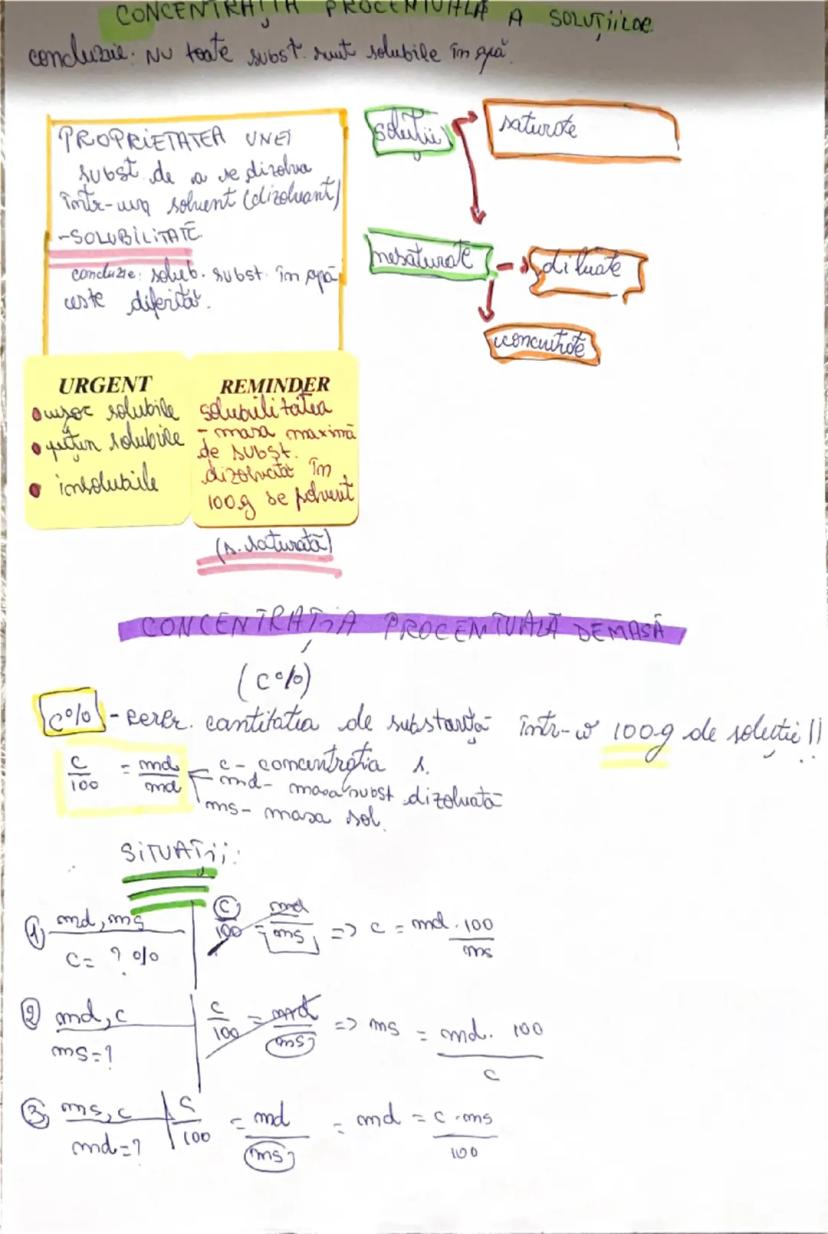 CONCENTRAȚIA PROCENTUALĂ A SOLUȚIILOR
concluzie: NU toate subst. sunt solubile în apă.
PROPRIETATEA UNEI
subst. de a se dizolva
într-un solvent (dizolvant)
-SOLUBILITATE
concluzie: solub. subst. în apă
este diferită.
soluții
saturate
nesaturate
diluate
concentrate
URGENT
• ușor solubile
• puțin solubile
• insolubile
REMINDER
solubilitatea
- masa maximă
de subst.
dizolvată în
100g se solvent
(s. saturată)
CONCENTRAȚIA PROCENTUALĂ DE MASĂ
(c%)
c% - repr. cantitatea de substanță într-o 100g de soluție!!
c/100 = md/md
c - concentrația s.
md - masa subst dizolvată
ms - masa sol.
SITUAȚII:
① md, ms
c = ? %
c/100 = md/ms => c = md · 100/ms
② md, c
ms = ?
c/100 = md/ms => ms = md · 100/c
③ ms, c
md = ?
c/100 = md/ms = md = c · ms/100